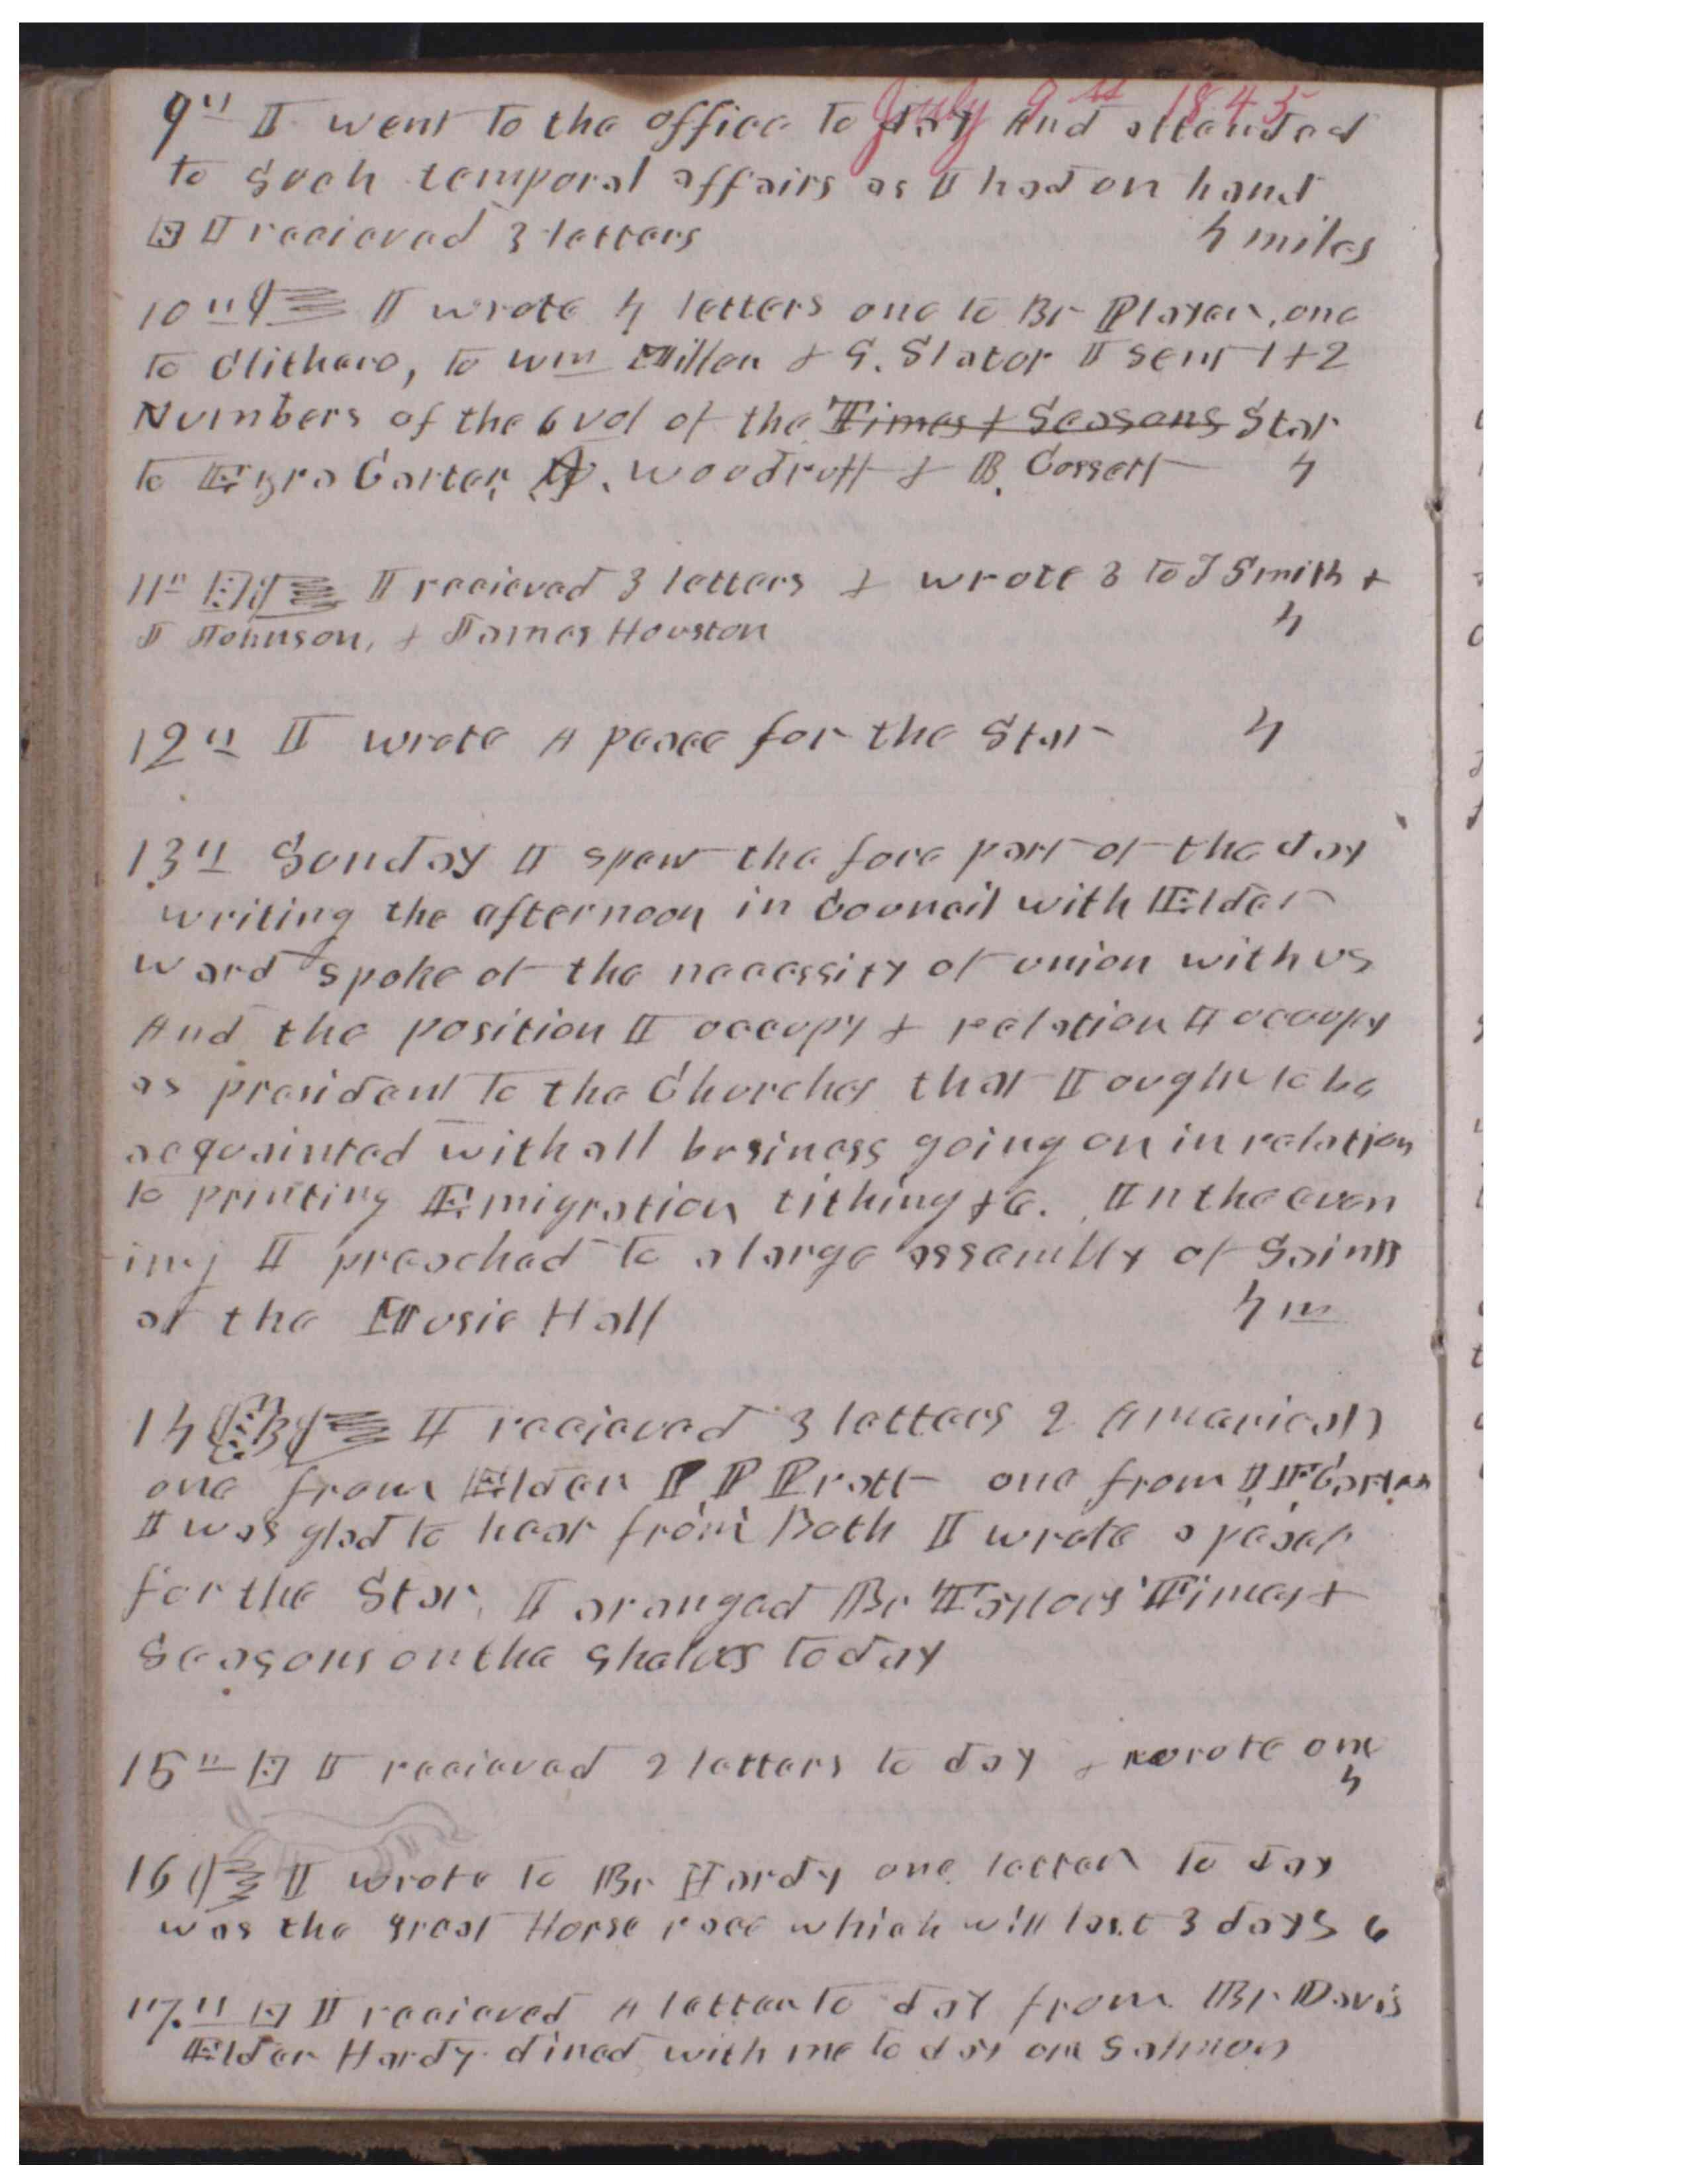 July 9th 1845
9th I went to the office to day And attended
to such temporal affairs as I had on hand
I recieved 3 letters 4 miles
10th I wrote 4 letters one to Br Player, one
to Clithero, to Wm Miller & G. Slator I sent 1 + 2
Numbers of the 6 vol of the Times & Seasons Star
to Ezra Carter, A. Woodruff & B. Cossett 4
11th I recieved 3 letters & wrote 3 to J Smith &
J Johnson, & James Houston 4
12th I wrote A peace for the Star 4
13th Sunday I spent the fore part of the day
writing the afternoon in Council with Elder
Ward spoke of the necessity of union with us
And the position I occupy & relation I occupy
as president to the Churches that I ought to be
acquainted with all business going on in relation
to printing Emigration tithing &c. In the even
ing I preached to a large assembly of Saints
at the Music Hall 4 m
14 I recieved 3 letters 2 American
one from Elder P. P Pratt one from I. F. Carter
I was glad to hear from Both I wrote a peace
for the Star, I aranged Br Taylors Times &
Seasons on the shelves to day
15th I recieved 2 letters to day & wrote one
4
16 I wrote to Br Hardy one letter to day
was the great Horse race which will last 3 days 6
17th I recieved A letter to day from Br Davis
Elder Hardy dined with me to day on Salmon